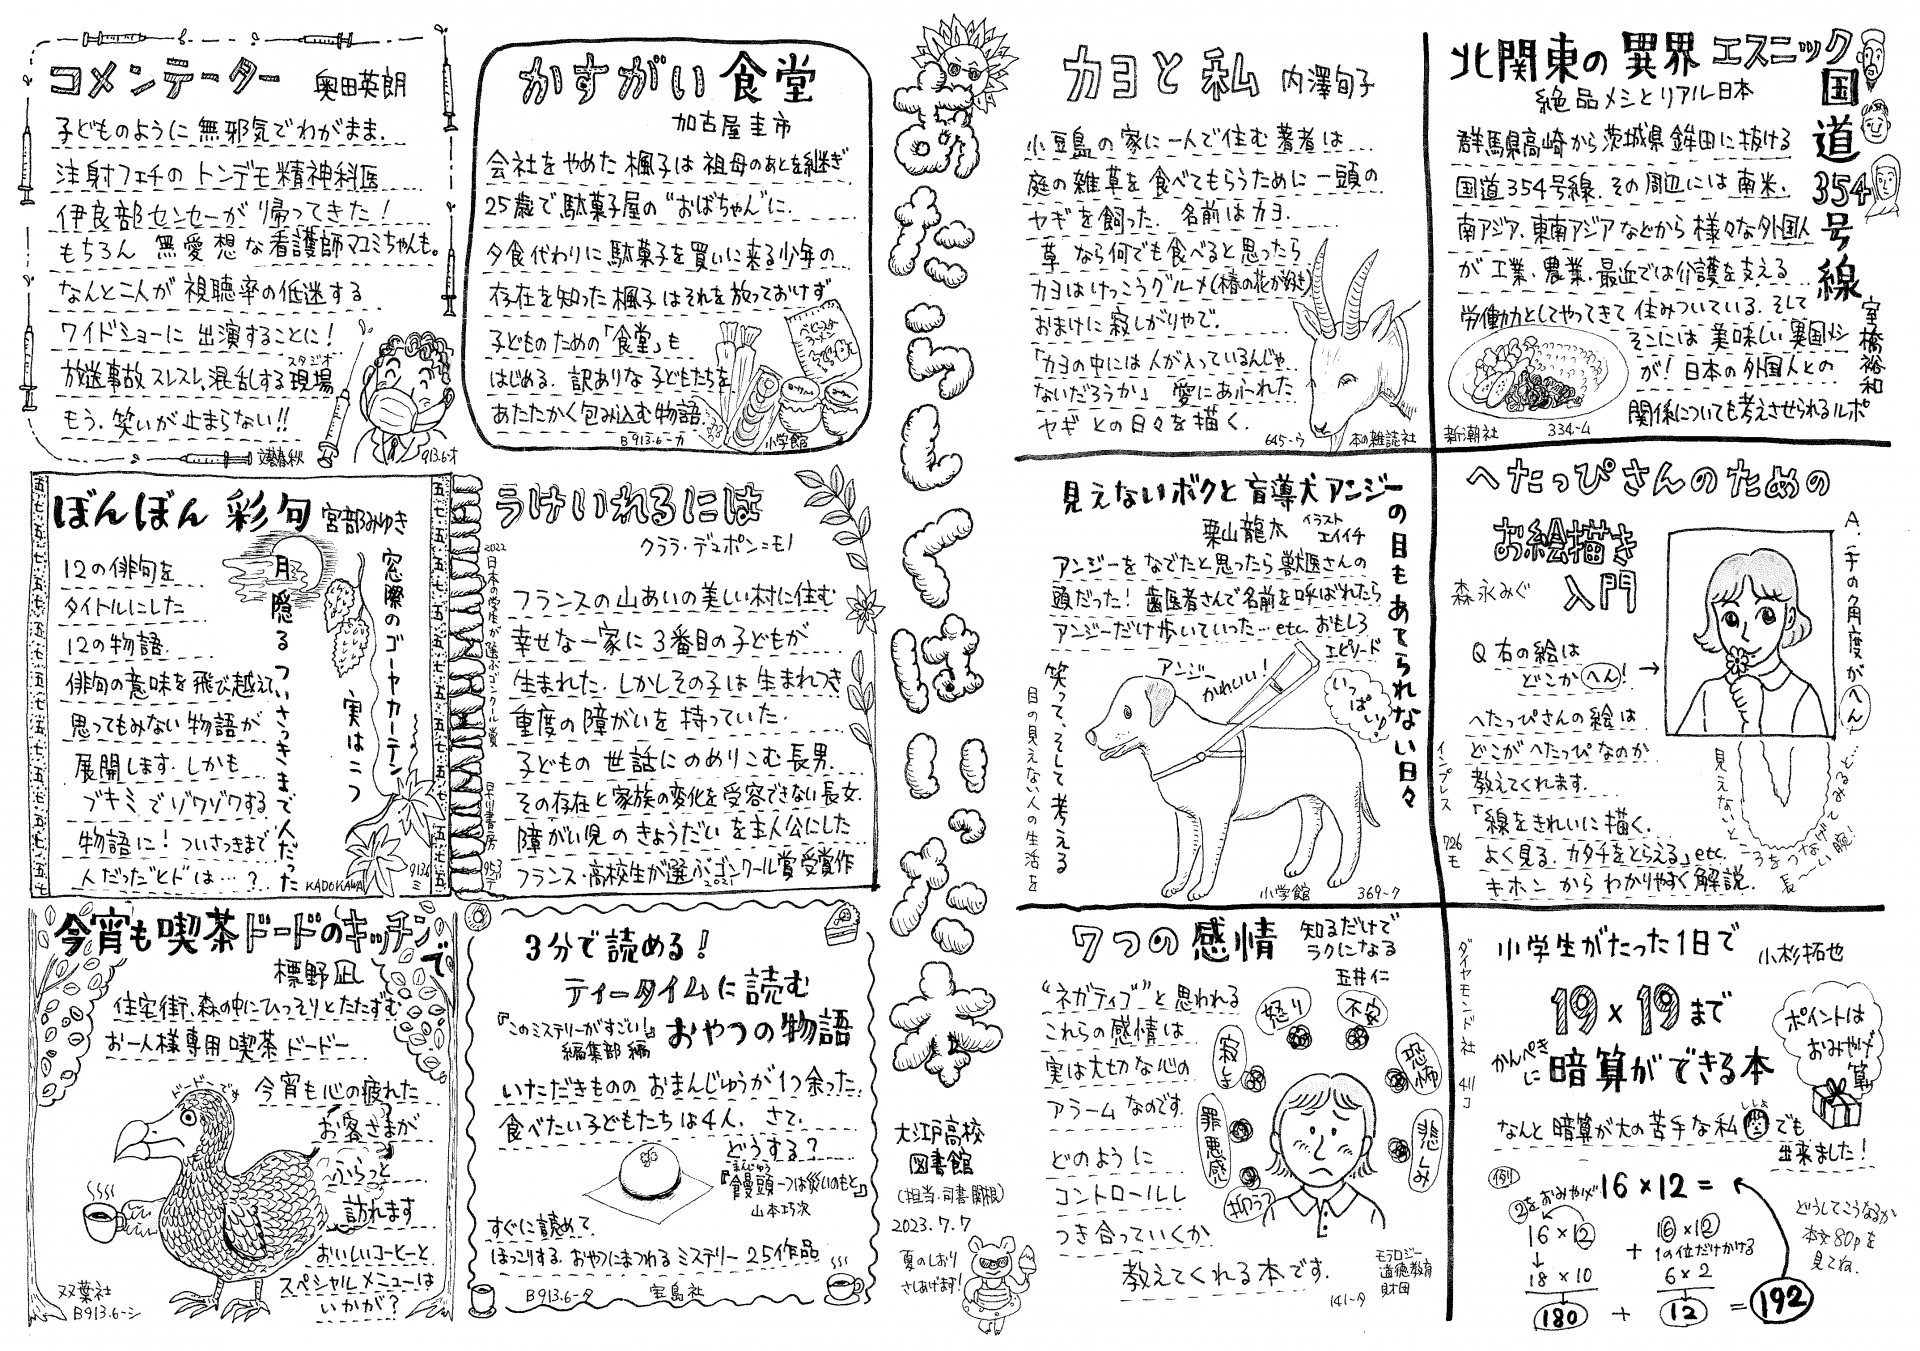 コメンテーター 奥田英朗
子どものように無邪気でわがまま.
注射フェチのトンデモ精神科医
伊良部センセーが帰ってきた!
もちろん 無愛想な看護師マユミちゃんも。
なんと二人が視聴率の低迷する
ワイドショーに出演することに!
放送事故スレスレ,混乱する現場
スタジオ
もう、笑いが止まらない!!
文藝春秋
913.6-オ
かすがい食堂
加古屋圭市
会社をやめた楓子は祖母のあとを継ぎ
25歳で駄菓子屋の“おばちゃん”に.
夕食代わりに駄菓子を買いに来る少年の
存在を知った楓子はそれを放っておけず
子どものための「食堂」も
はじめる. 訳ありな子どもたちを
あたたかく包み込む物語.
B913.6-カ 小学館
ぼんぼん彩句 宮部みゆき
12の俳句を
タイトルにした
12の物語.
俳句の意味を飛び越えて
思ってもみない物語が
展開します.しかも
ブキミでゾワゾワする
物語に!ついさっきまで
人だったヒトは…?
窓際のゴーヤカーテン 実は二つ
月隠るついさっきまで人だった
KADOKAWA
913.6ミ
うけいれるには
クララ・デュポン=モノ
2022日本の学生が選ぶゴンクール賞
早川書房
953デ
フランスの山あいの美しい村に住む
幸せな一家に3番目の子どもが
生まれた.しかしその子は生まれつき
重度の障がいを持っていた.
子どもの世話にのめりこむ長男.
その存在と家族の変化を受容できない長女.
障がい児のきょうだいを主人公にした
フランス・高校生が選ぶゴンクール賞受賞作
2021
今宵も喫茶ドードーのキッチンで
標野凪
住宅街.森の中にひっそりとたたずむ
お一人様専用喫茶ドードー
ドードーです
今宵も心の疲れた
お客さまが
ふらっと
訪れます
おいしいコーヒーと
スペシャルメニューは
いかが?
双葉社
B913.6-シ
3分で読める!
ティータイムに読む
『このミステリーがすごい!』編集部 編
おやつの物語
いただきもののおまんじゅうが1つ余った.
食べたい子どもたちは4人. さて.
どうする?
まんじゅう
『饅頭一つは災いのもと』
山本巧次
すぐに読めて.
ほっこりする.おやつにまつわるミステリー25作品
B913.6-タ 宝島社
大江戸高校
図書館
(担当.司書.関根)
2023.7.7
夏のしおり
さしあげます!
カヨと私 内澤旬子
小豆島の家に一人で住む著者は
庭の雑草を食べてもらうために一頭の
ヤギを飼った. 名前はカヨ.
草なら何でも食べると思ったら
カヨはけっこうグルメ(椿の花が好き)
おまけに寂しがりやで.
「カヨの中には人が入っているんじゃ
ないだろうか」愛にあふれた
ヤギとの日々を描く.
645-ウ 本の雑誌社
北関東の異界 エスニック国道354号線
絶品メシとリアル日本
室橋裕和
群馬県高崎から茨城県鉾田に抜ける
国道354号線.その周辺には南米.
南アジア.東南アジアなどから様々な外国人
が工業.農業.最近では介護を支える
労働力としてやってきて住みついている.そして
そこには美味しい異国メシ
が!日本の外国人との
関係についても考えさせられるルポ
新潮社 334-ム
見えないボクと盲導犬アンジーの目もあてられない日々
栗山龍太 イラスト エイイチ
アンジーをなでたと思ったら獣医さんの
頭だった!歯医者さんで名前を呼ばれたら
アンジーだけ歩いていった…etc.おもしろ
エピソード
いっぱい!
アンジー
かわいい!
笑って、そして考える
目の見えない人の生活を
小学館 369-ク
へたっぴさんのための
お絵描き
入門
森永みぐ
Q 右の絵は
どこかへん!
→
A.手の角度がへん
見えないところをつなげてみると…
長〜い腕!
へたっぴさんの絵は
どこがへたっぴなのか
教えてくれます.
「線をきれいに描く.
よく見る.カタチをとらえる」etc.
キホンからわかりやすく解説.
インプレス
726モ
7つの感情
知るだけで
ラクになる
玉井仁
“ネガティブ”と思われる
これらの感情は
実は大切な心の
アラームなのです.
どのように
コントロールし
つき合っていくか
教えてくれる本です.
怒り
不安
寂しさ
恐怖
罪悪感
悲しみ
抑うつ
モラロジー
道徳教育
財団
141-タ
小学生がたった1日で 小杉拓也
19×19まで
かんぺきに 暗算ができる本
ポイントは
おみやげ
算
なんと暗算が大の苦手な私でも
出来ました!
ダイヤモンド社 411コ
(例)
2をおみやげ
16×12=
16×12
↓
18×10
180
+
16×12
1の位だけかける
6×2
12
=192
どうしてこうなるか
本文80pを
見てね.